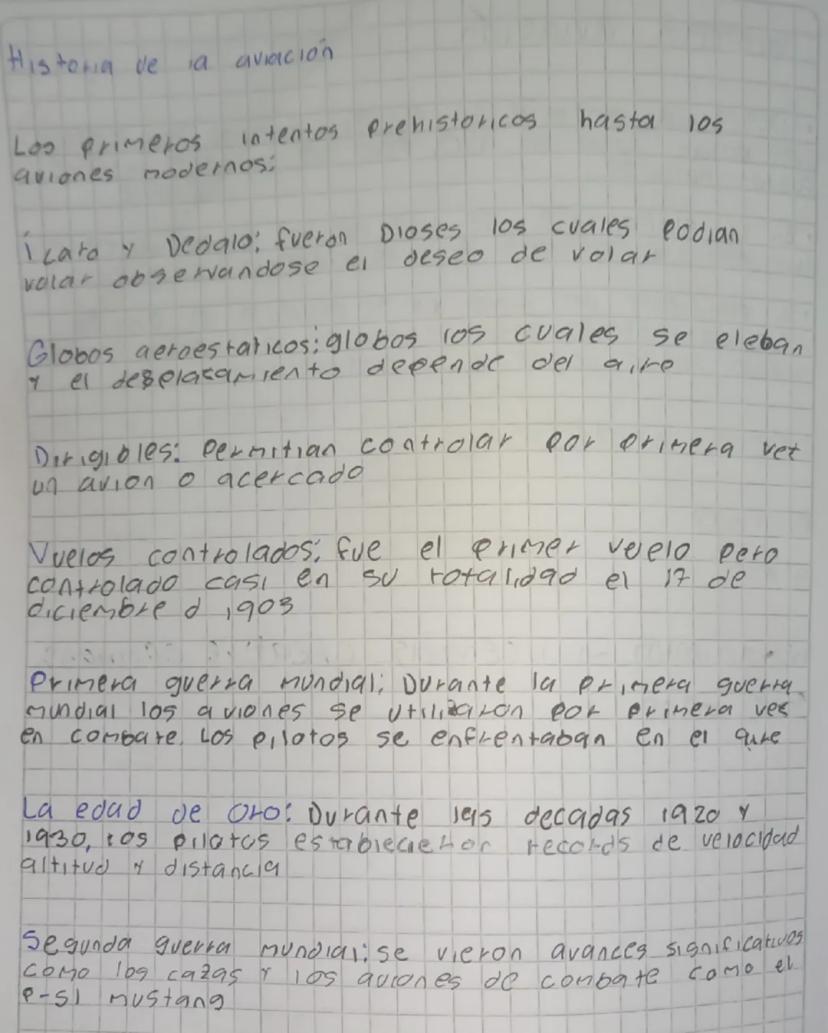 Historia de la aviación
Los primeros intentos prehistoricos hasta los
aviones modernos:
Ícaro y Dedalo: fueron Dioses los cuales podian
volar observandose el deseo de volar
Globos aeroestaticos: globos los cuales se eleban
y el desplasamiento depende del aire
Dirigibles: permitian controlar por primera vez
un avion o acercado
Vuelos controlados: fue el primer vuelo pero
controlado casi en su totalidad el 17 de
diciembre d 1903
Primera guerra mundial: Durante la primera guerra
mundial los aviones se utilizaron por primera ves
en combate. Los pilotos se enfrentaban en el aire
La edad de oro: Durante las decadas 1920 y
1930, los pilotos establecieron records de velocidad
altitud y distancia
Segunda guerra mundial: se vieron avances significativos
como los cazas y los aviones de combate como el
p-51 mustang